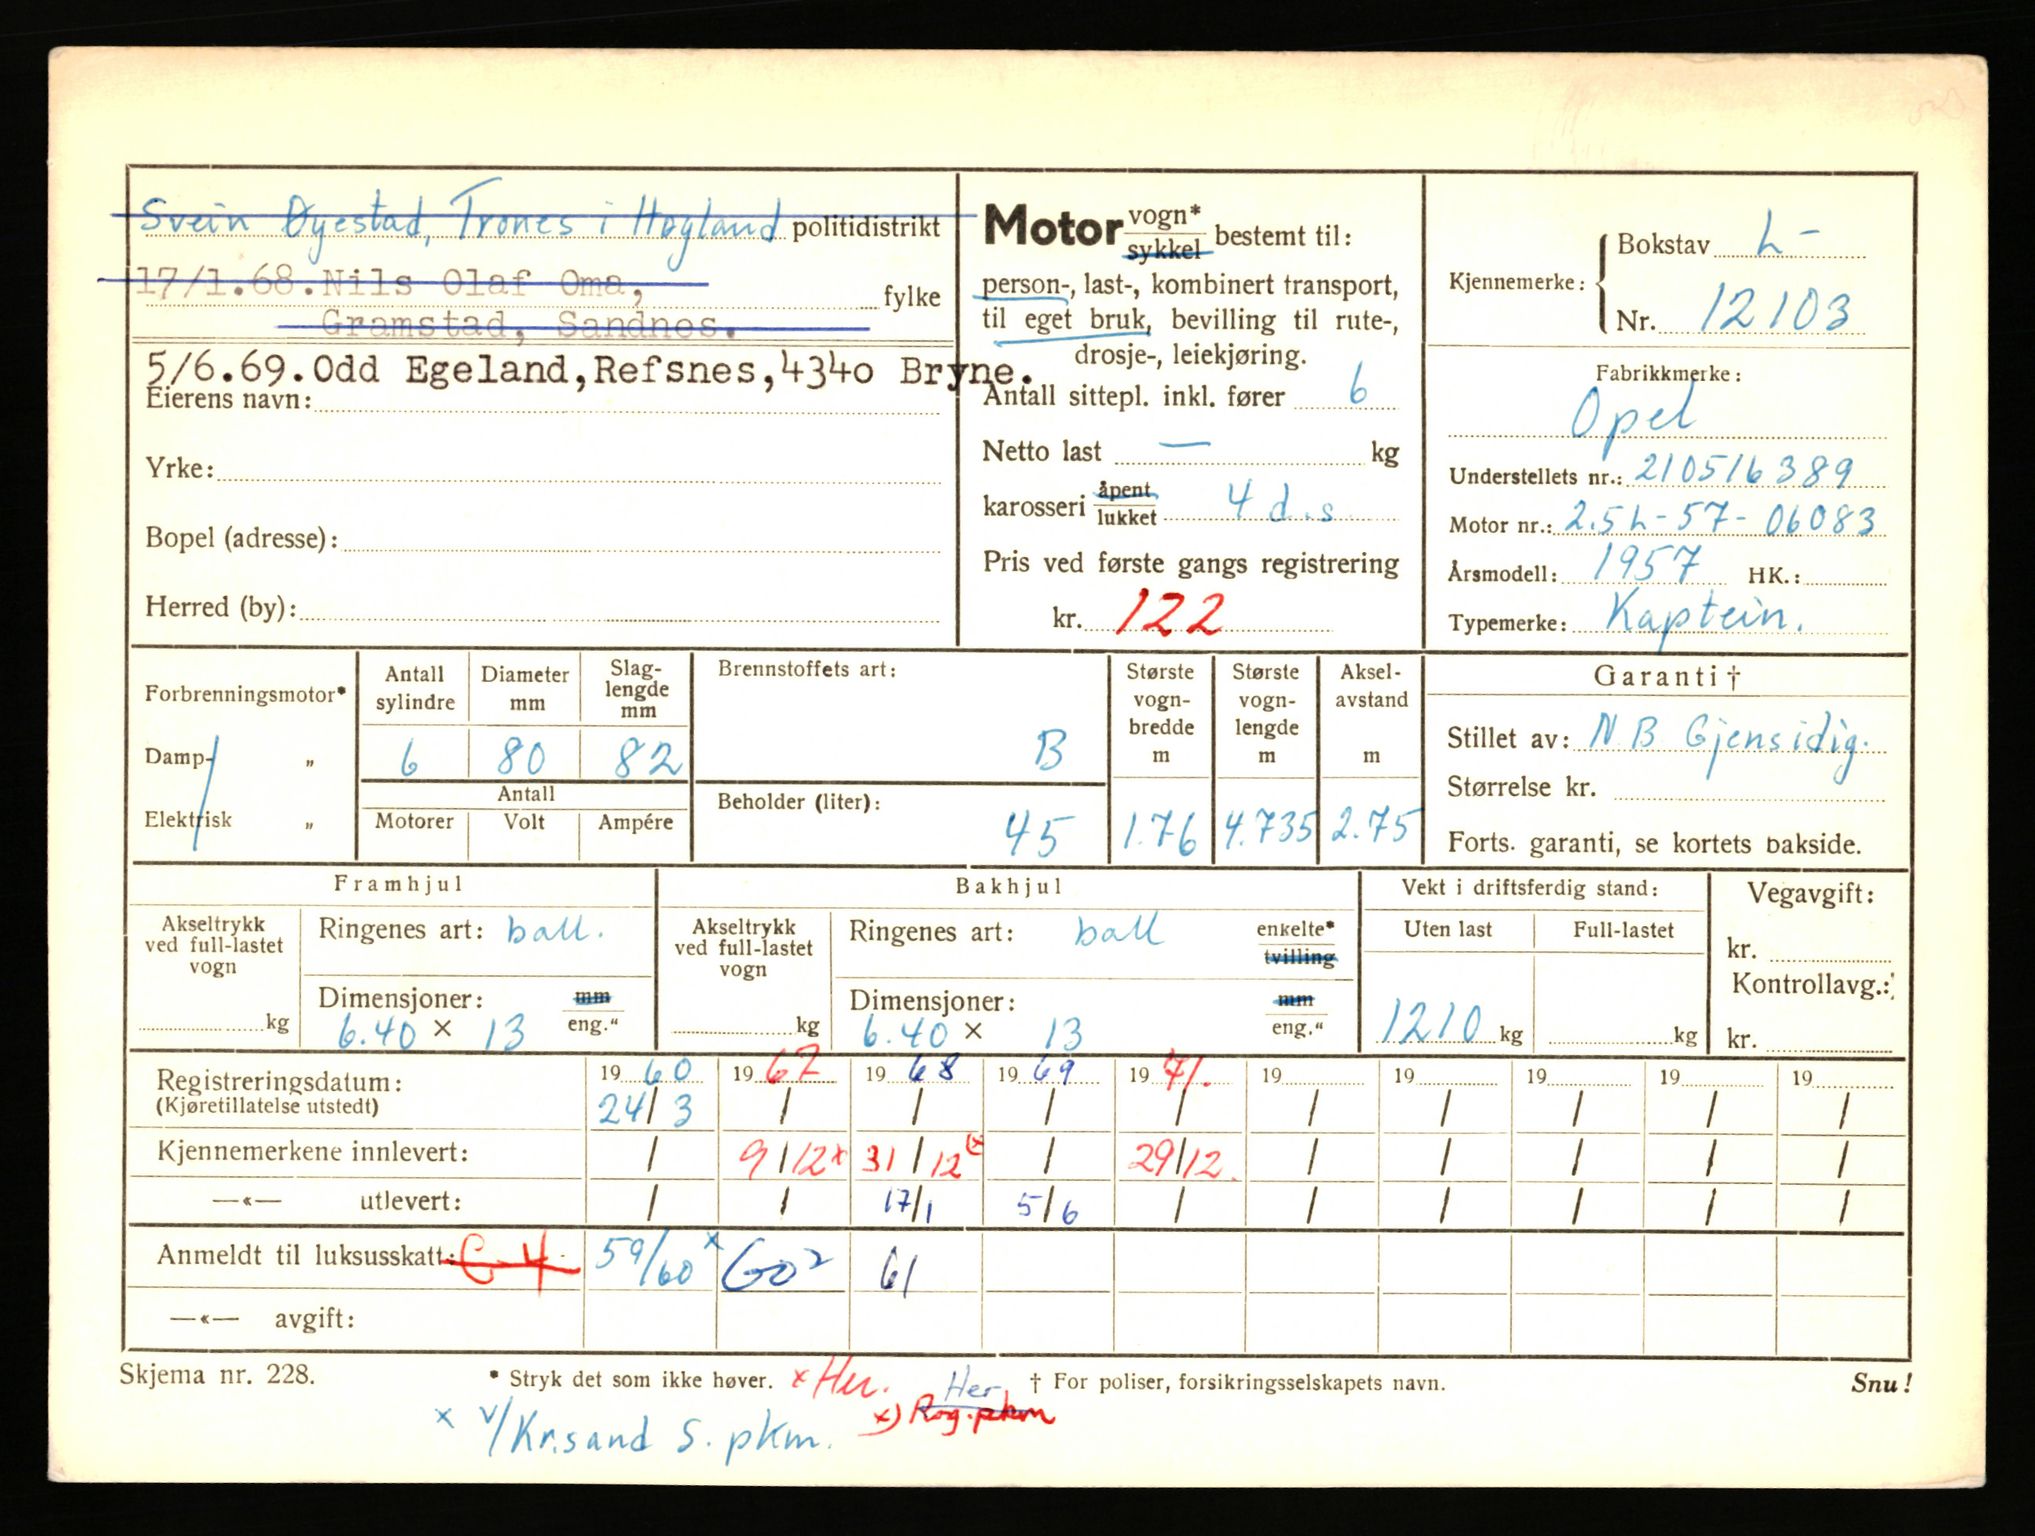 Svein Øyestad, Trones i Høyland politidistrikt
17/1.68. Nils Olaf Oma, fylke
Gramstad, Sandnes.
5/6.69. Odd Egeland, Refsnes, 4340 Bryne.
Eierens navn:
Yrke:
Bopel (adresse):
Herred (by):
Motor vogn* sykkel bestemt til:
person-, last-, kombinert transport,
til eget bruk, bevilling til rute-,
drosje-, leiekjøring.
Antall sittepl. inkl. fører 6
Netto last — kg
karosseri åpent lukket 4 d.s.
Pris ved første gangs registrering
kr. 122
Kjennemerke: Bokstav L-
Nr. 12103
Fabrikkmerke:
Opel
Understellets nr.: 210516389
Motor nr.: 2.5L-57-06083
Årsmodell: 1957 HK.:
Typemerke: Kaptein.
Forbrenningsmotor*
Damp- „
Elektrisk „
Antall sylindre Diameter mm Slaglengde mm
6 80 82
Antall
Motorer Volt Ampére
Brennstoffets art:
B
Beholder (liter):
45
Største vognbredde m 1.76
Største vognlengde m 4.735
Akselavstand m 2.75
Garanti †
Stillet av: N.B Gjensidig.
Størrelse kr.
Forts. garanti, se kortets bakside.
Framhjul
Akseltrykk ved full-lastet vogn kg
Ringenes art: ball.
Dimensjoner: mm eng."
6.40 × 13
Bakhjul
Akseltrykk ved full-lastet vogn kg
Ringenes art: ball enkelte* tvilling
Dimensjoner: mm eng."
6.40 × 13
Vekt i driftsferdig stand:
Uten last Full-lastet
1210 kg kg
Vegavgift:
kr.
Kontrollavg.:
kr.
Registreringsdatum: 1960 1967 1968 1969 1971. 19 19 19 19 19
(Kjøretillatelse utstedt) 24/3 / / / / / / / / /
Kjennemerkene innlevert: / 9/12x 31/12 / 29/12. / / / / /
—«— utlevert: / / 17/1 5/6 / / / / / /
Anmeldt til luksusskatt: 59/60 x 60² 61
—«— avgift:
Skjema nr. 228.
* Stryk det som ikke høver. x Her. Her † For poliser, forsikringsselskapets navn. Snu!
x) Rog.pkm
x v/Kr.sand S. pkm.